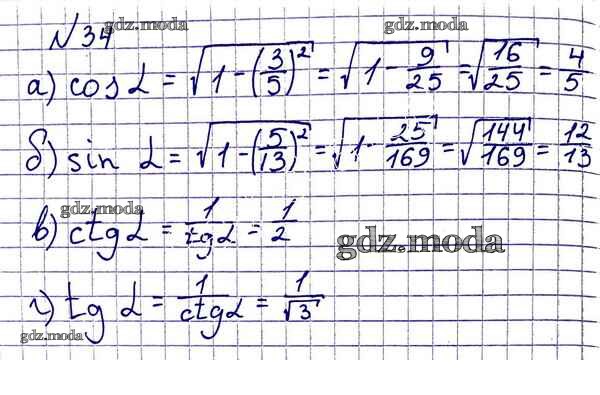 gdz.moda gdz.moda
№34
а) cos α = √(1 - (3/5)²) = √(1 - 9/25) = √(16/25) = 4/5
б) sin α = √(1 - (5/13)²) = √(1 - 25/169) = √(144/169) = 12/13
gdz.moda
в) ctg α = 1/tg α = 1/2
gdz.moda
г) tg α = 1/ctg α = 1/√3
gdz.moda